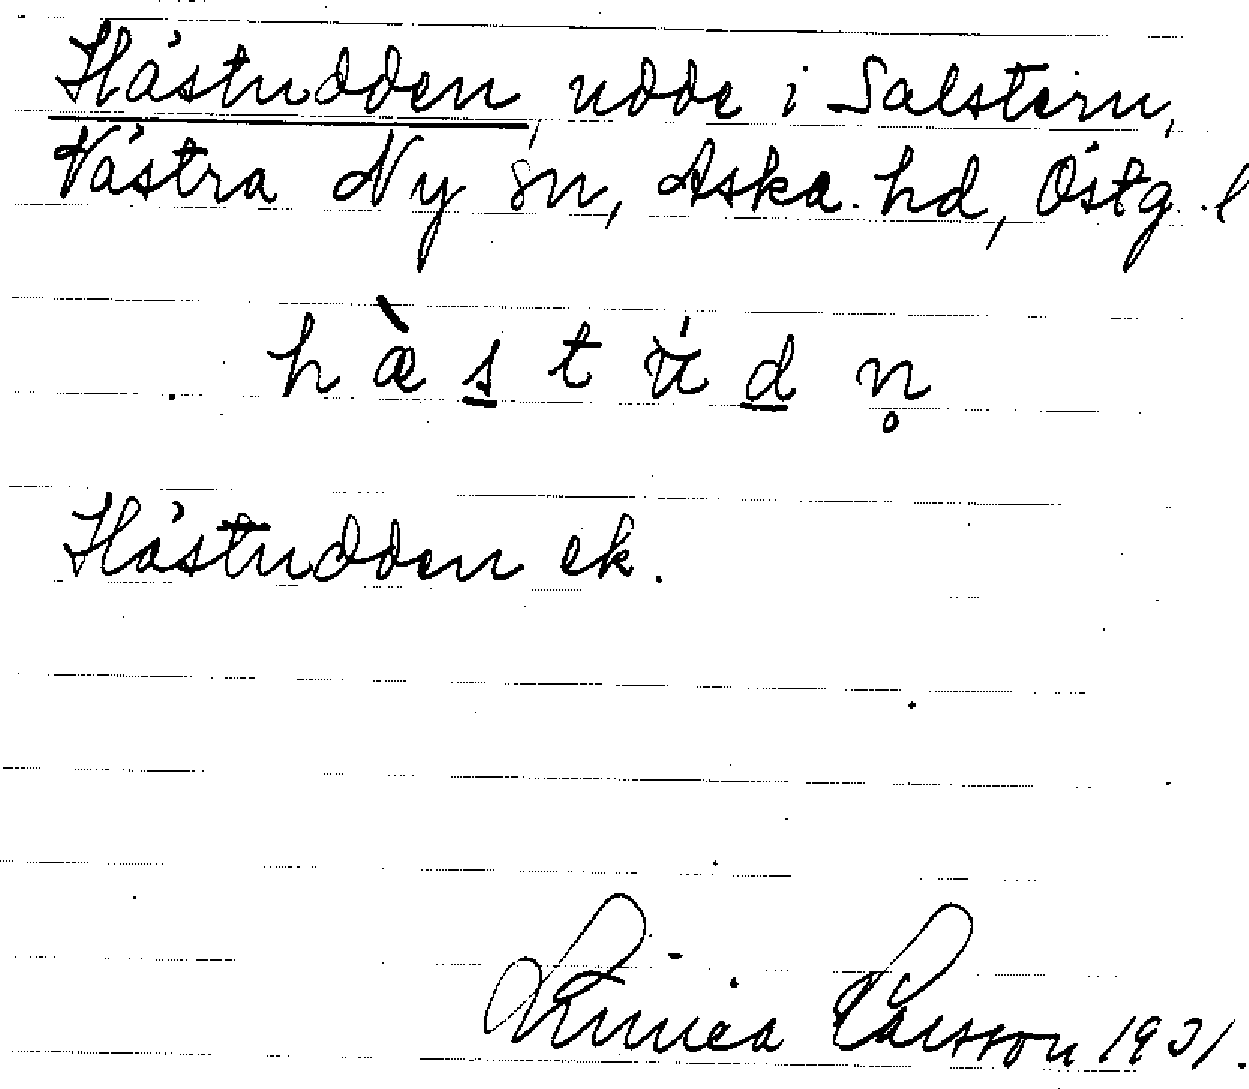 Hästudden, udde i Salstern,
Västra Ny sn, Aska hd, Östg. l
h æ̀ s̲ t ú d̲ n̥
Hästudden ek.
Linnea Larsson 1931.